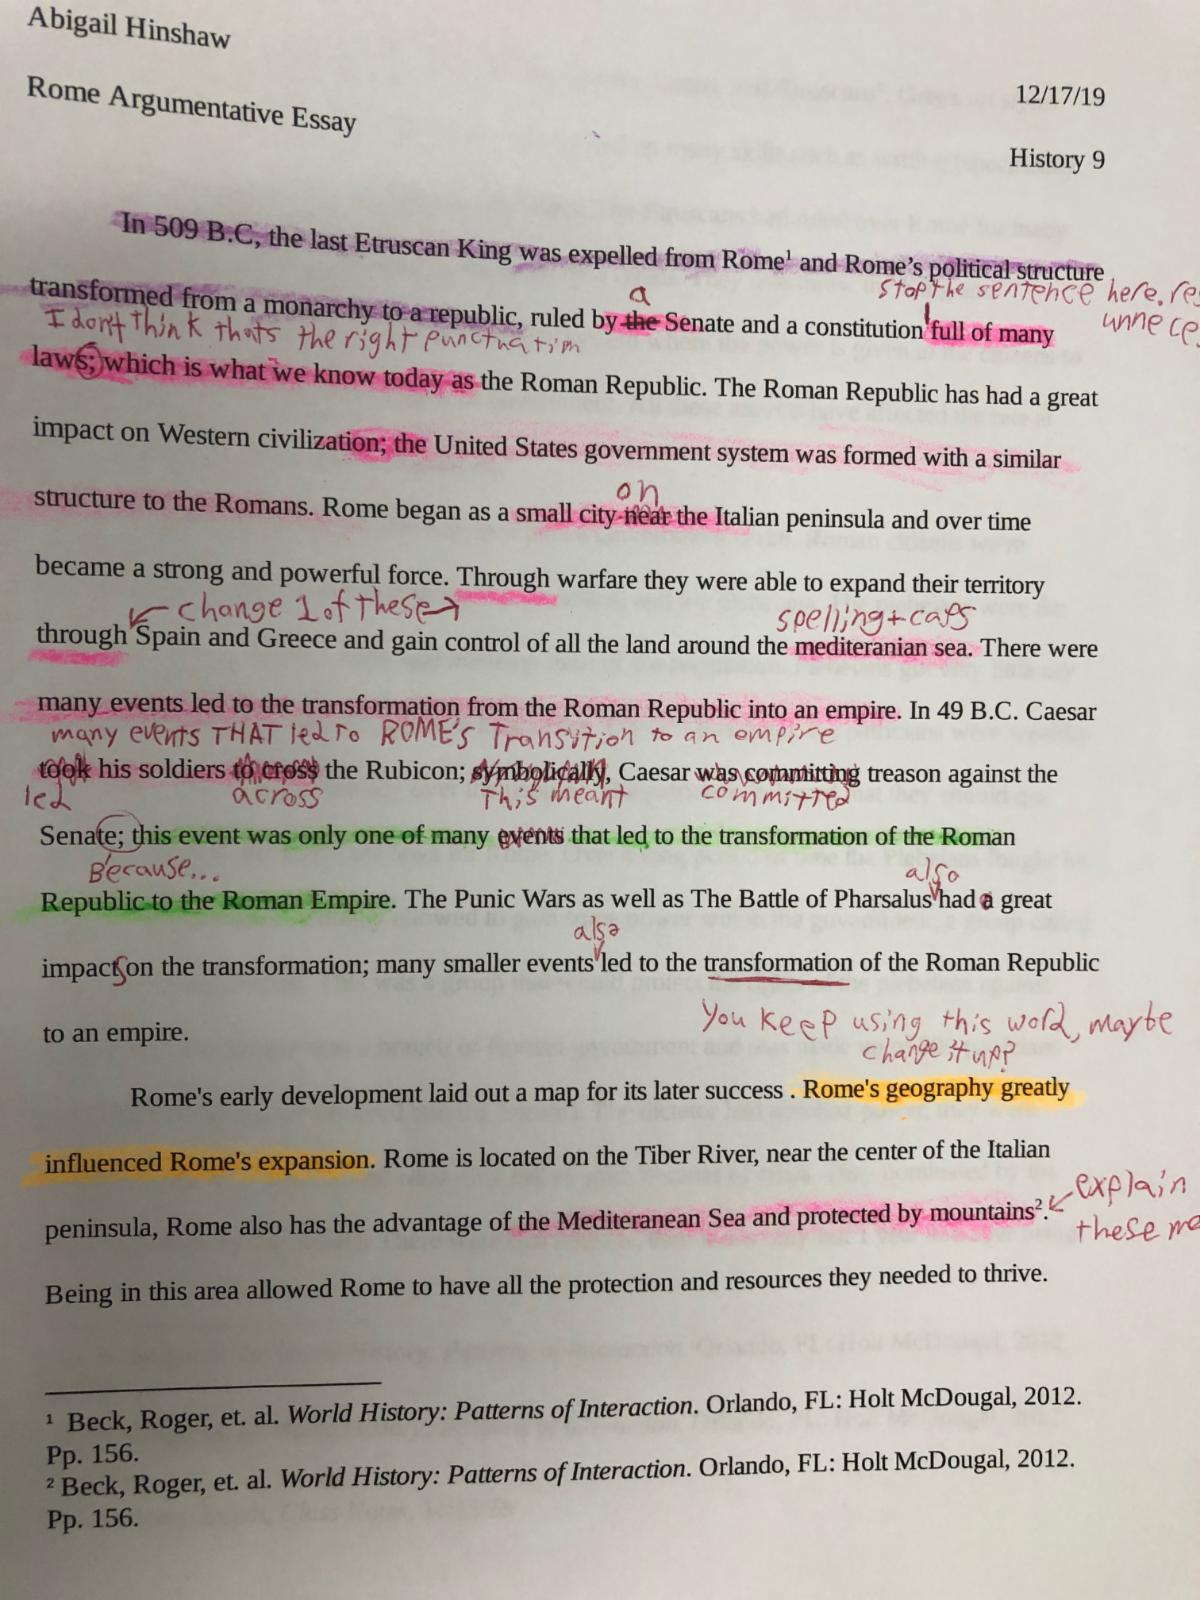 Abigail Hinshaw
Rome Argumentative Essay
12/17/19
History 9
In 509 B.C, the last Etruscan King was expelled from Rome¹ and Rome's political structure
stop the sentence here.
a
transformed from a monarchy to a republic, ruled by the Senate and a constitution full of many
I don't think thats the right punctuation
laws; which is what we know today as the Roman Republic. The Roman Republic has had a great
impact on Western civilization; the United States government system was formed with a similar
on
structure to the Romans. Rome began as a small city near the Italian peninsula and over time
became a strong and powerful force. Through warfare they were able to expand their territory
change 1 of these
spelling + caps
through Spain and Greece and gain control of all the land around the mediteranian sea. There were
many events led to the transformation from the Roman Republic into an empire. In 49 B.C. Caesar
many events THAT led to ROME'S Transition to an empire
took his soldiers to cross the Rubicon; symbolically, Caesar was committing treason against the
led across This meant committed
Senate; this event was only one of many events that led to the transformation of the Roman
Because...
also
Republic to the Roman Empire. The Punic Wars as well as The Battle of Pharsalus had a great
also
impacts on the transformation; many smaller events led to the transformation of the Roman Republic
to an empire.
You keep using this word, maybe
change it up?
Rome's early development laid out a map for its later success . Rome's geography greatly
influenced Rome's expansion. Rome is located on the Tiber River, near the center of the Italian
explain
peninsula, Rome also has the advantage of the Mediteranean Sea and protected by mountains².
these
Being in this area allowed Rome to have all the protection and resources they needed to thrive.
¹ Beck, Roger, et. al. World History: Patterns of Interaction. Orlando, FL: Holt McDougal, 2012.
Pp. 156.
² Beck, Roger, et. al. World History: Patterns of Interaction. Orlando, FL: Holt McDougal, 2012.
Pp. 156.